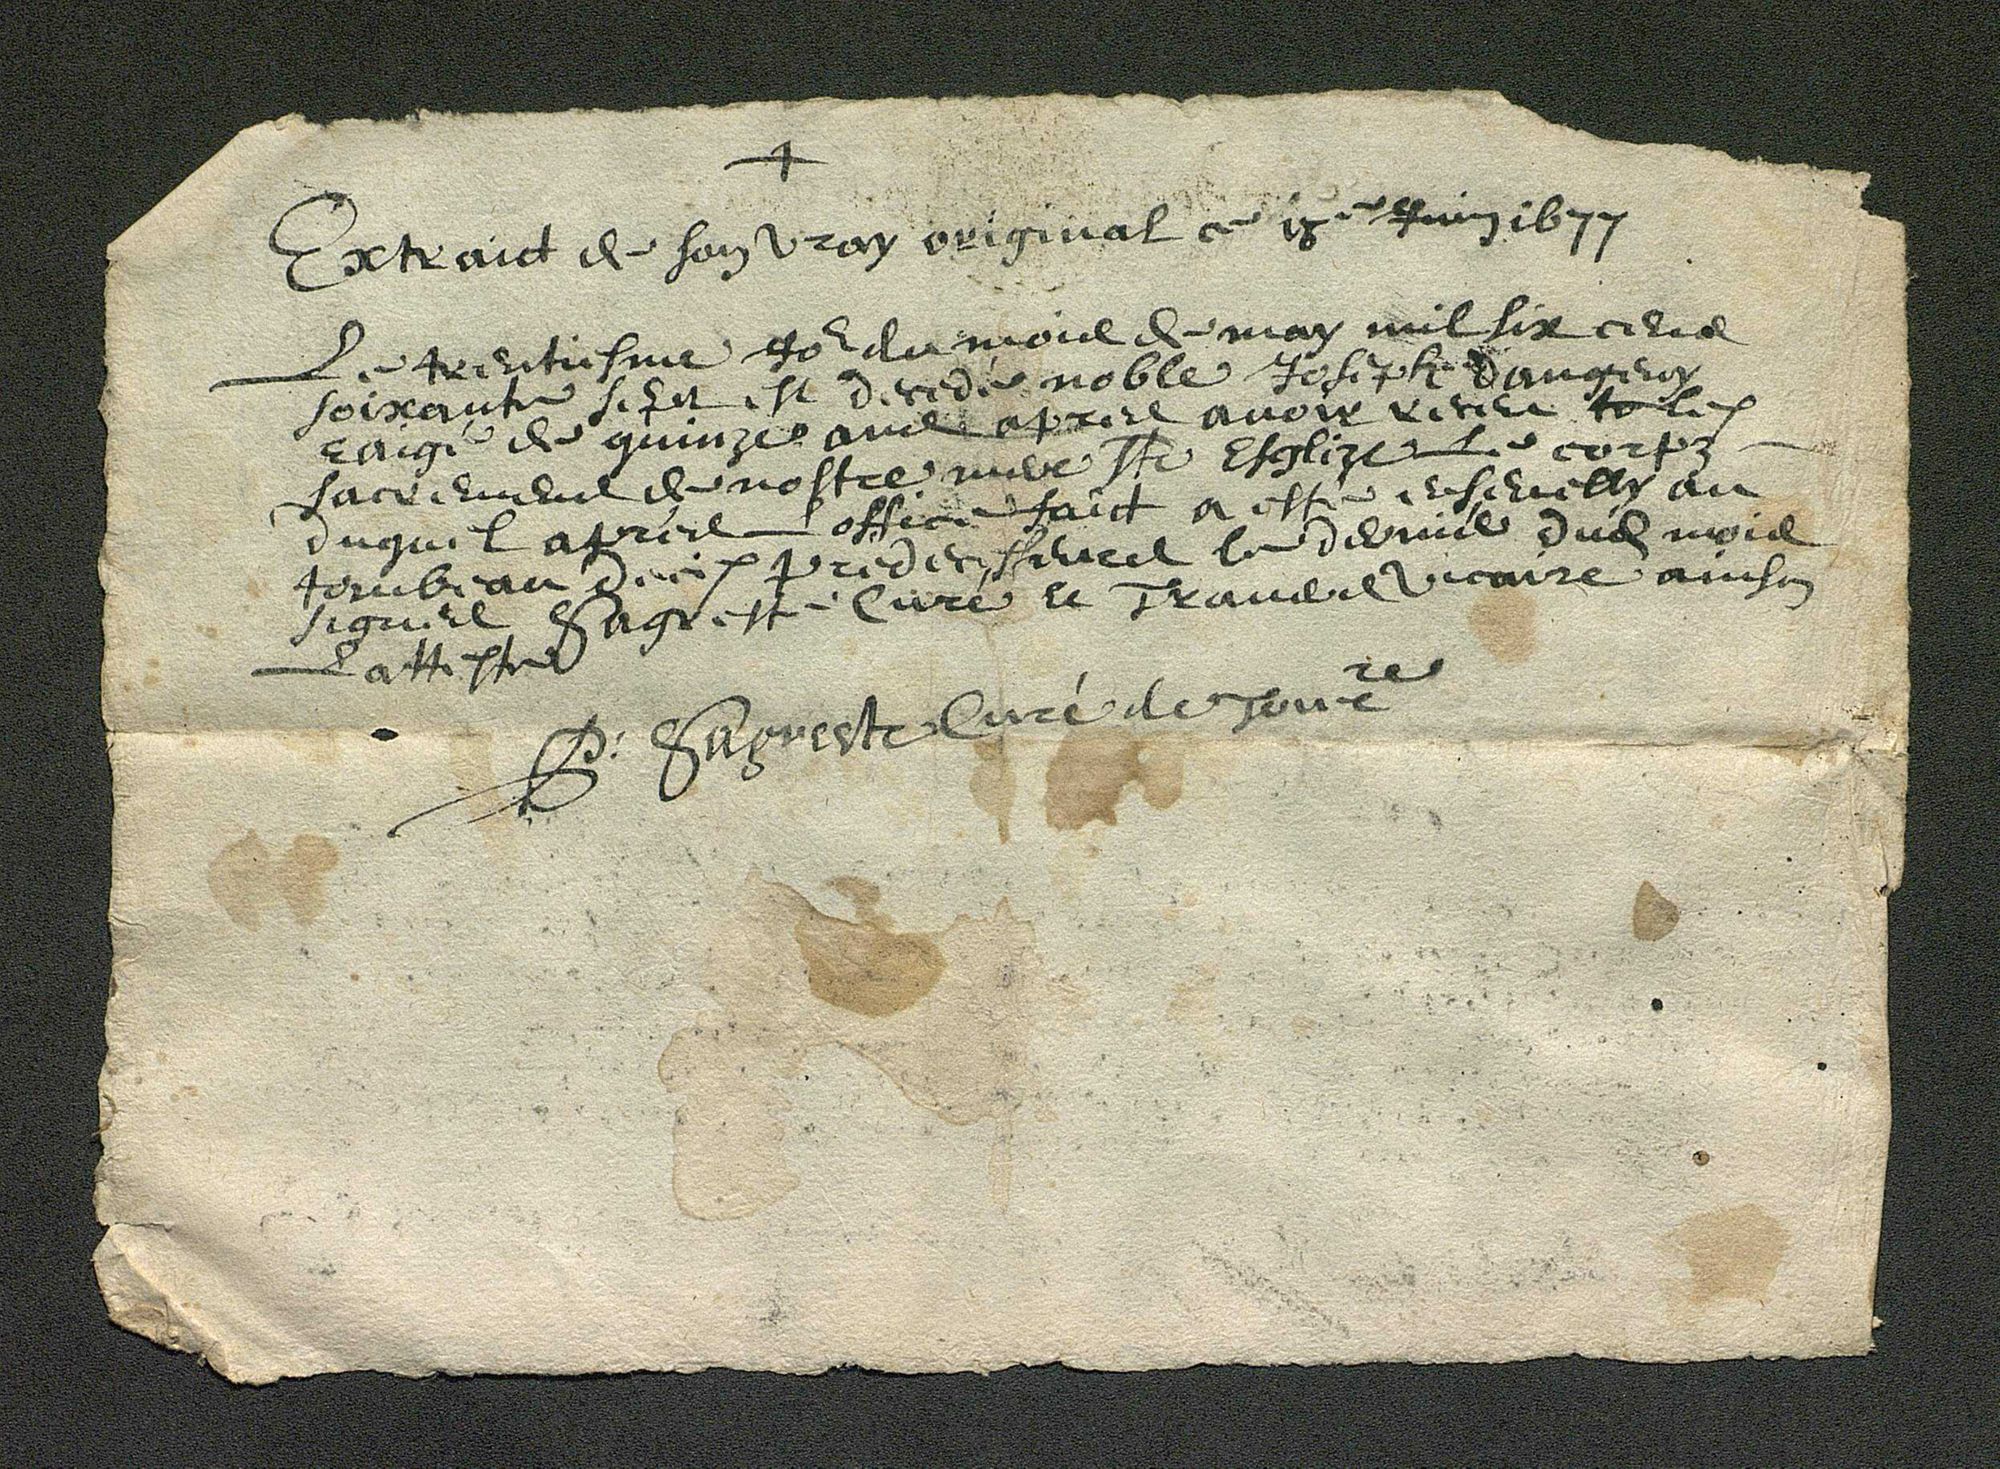 +
Extraict de son vray original ce 18e Juin 1677
Le trentiesme Jor du mois de may mil six cens
soixante sept est decedé noble Joseph dangeroy
eaigé de quinze ans apres avoir receu to les
sacremens de nostre mere Ste Esglize Le corps
duquel apres l office faict a esté ensevelly au
tombeau de ces predecesseurs le dernie dud mois
signes Sagreste Curé et vicaire ainson
Latteste
P. Sagreste Curé de